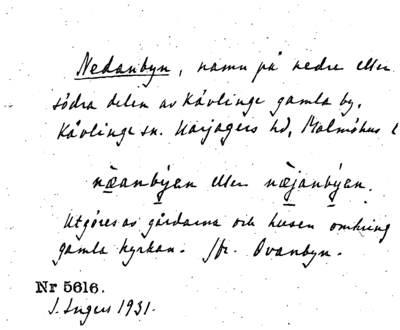 Nedanbyn, namn på nedre eller
södra delen av Kävlinge gamla by.
Kävlinge sn. Harjagers hd, Malmöhus l
næanbýan eller næjanbýan.
Utgöres av gårdarna och husen omkring
gamla kyrkan. Jfr. Ovanbyn.
Nr 5616.
I. Ingers 1931.